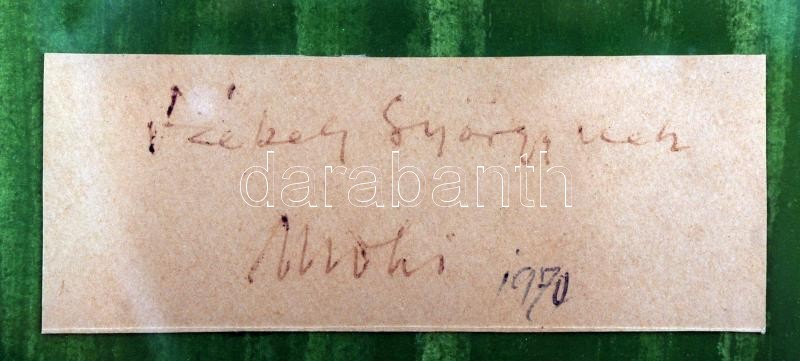 Székely Györgynek
darabanth
1970